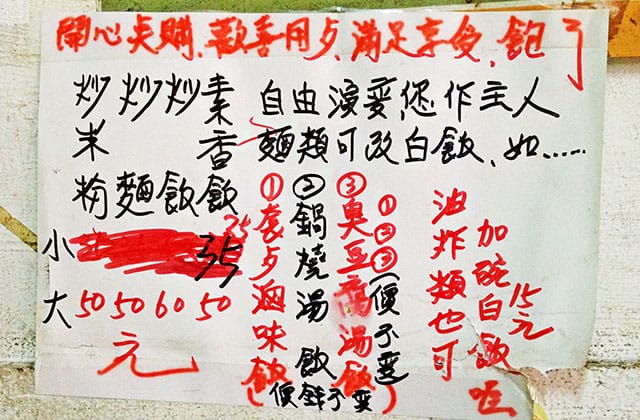 開心点購,歡喜用歺,滿足享受,飽了
炒米粉
炒麵
炒飯
素香飯
小 35 35
大 50 50 60 50
元
自由演變,您作主人
麵類可改白飯、如……
①套歺滷味飯
②鍋燒湯飯
③臭豆腐湯飯
①②③(不變)
油炸類也可
加碗白飯15元